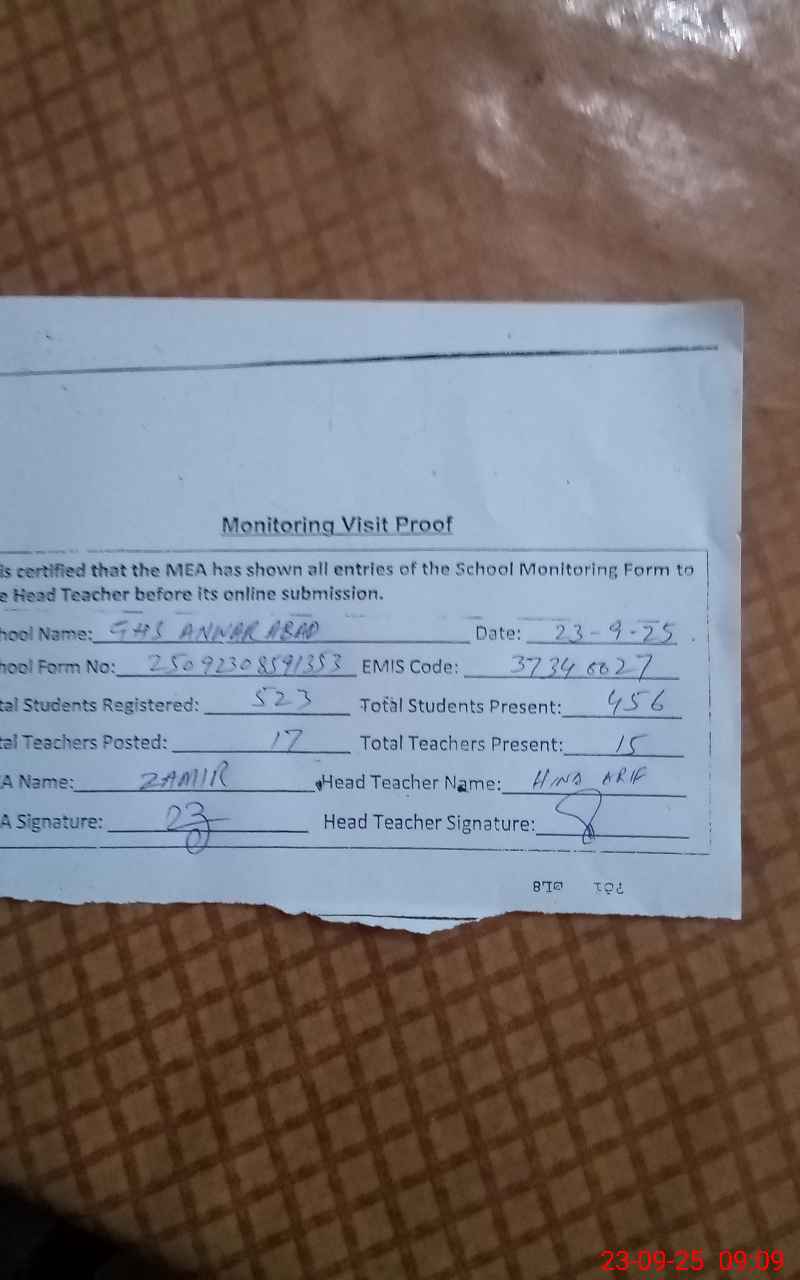 Monitoring Visit Proof
is certified that the MEA has shown all entries of the School Monitoring Form to
e Head Teacher before its online submission.
hool Name: GHS ANWAR ABAD Date: 23-9-25
hool Form No: 25092308591353 EMIS Code: 37340027
tal Students Registered: 523 Total Students Present: 456
tal Teachers Posted: 17 Total Teachers Present: 15
A Name: ZAMIR Head Teacher Name: HINA ARIF
A Signature: Head Teacher Signature:
23-09-25 09:09